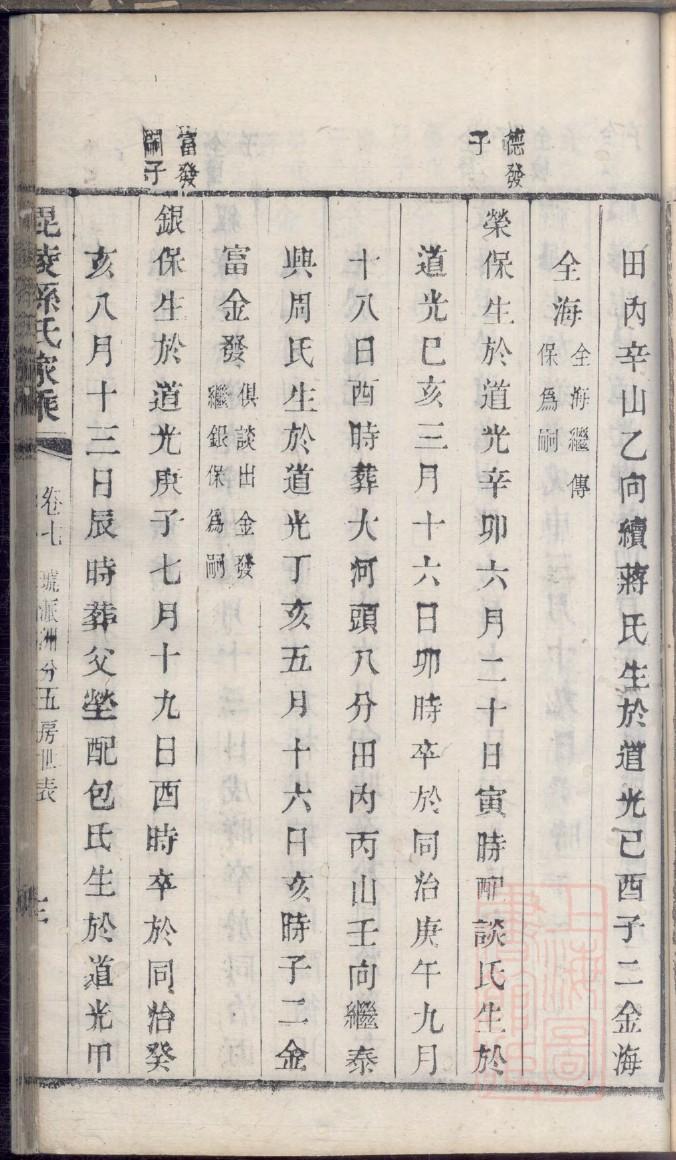 田內辛山乙向續蔣氏生於道光己酉子二金海
全海
全海繼傳
保爲嗣
德發
子
榮保生於道光辛卯六月二十日寅時配談氏生於
道光己亥三月十六日卯時卒於同治庚午九月
十八日酉時葬大河頭八分田內丙山壬向繼泰
興周氏生於道光丁亥五月十六日亥時子二金
富金發
俱談出金發
繼銀保爲嗣
富發
嗣子
銀保生於道光庚子七月十九日酉時卒於同治癸
亥八月十三日辰時葬父塋配包氏生於道光甲
毘陵孫氏家乘
卷七
琥派洲分五房世表
上海圖
書館藏